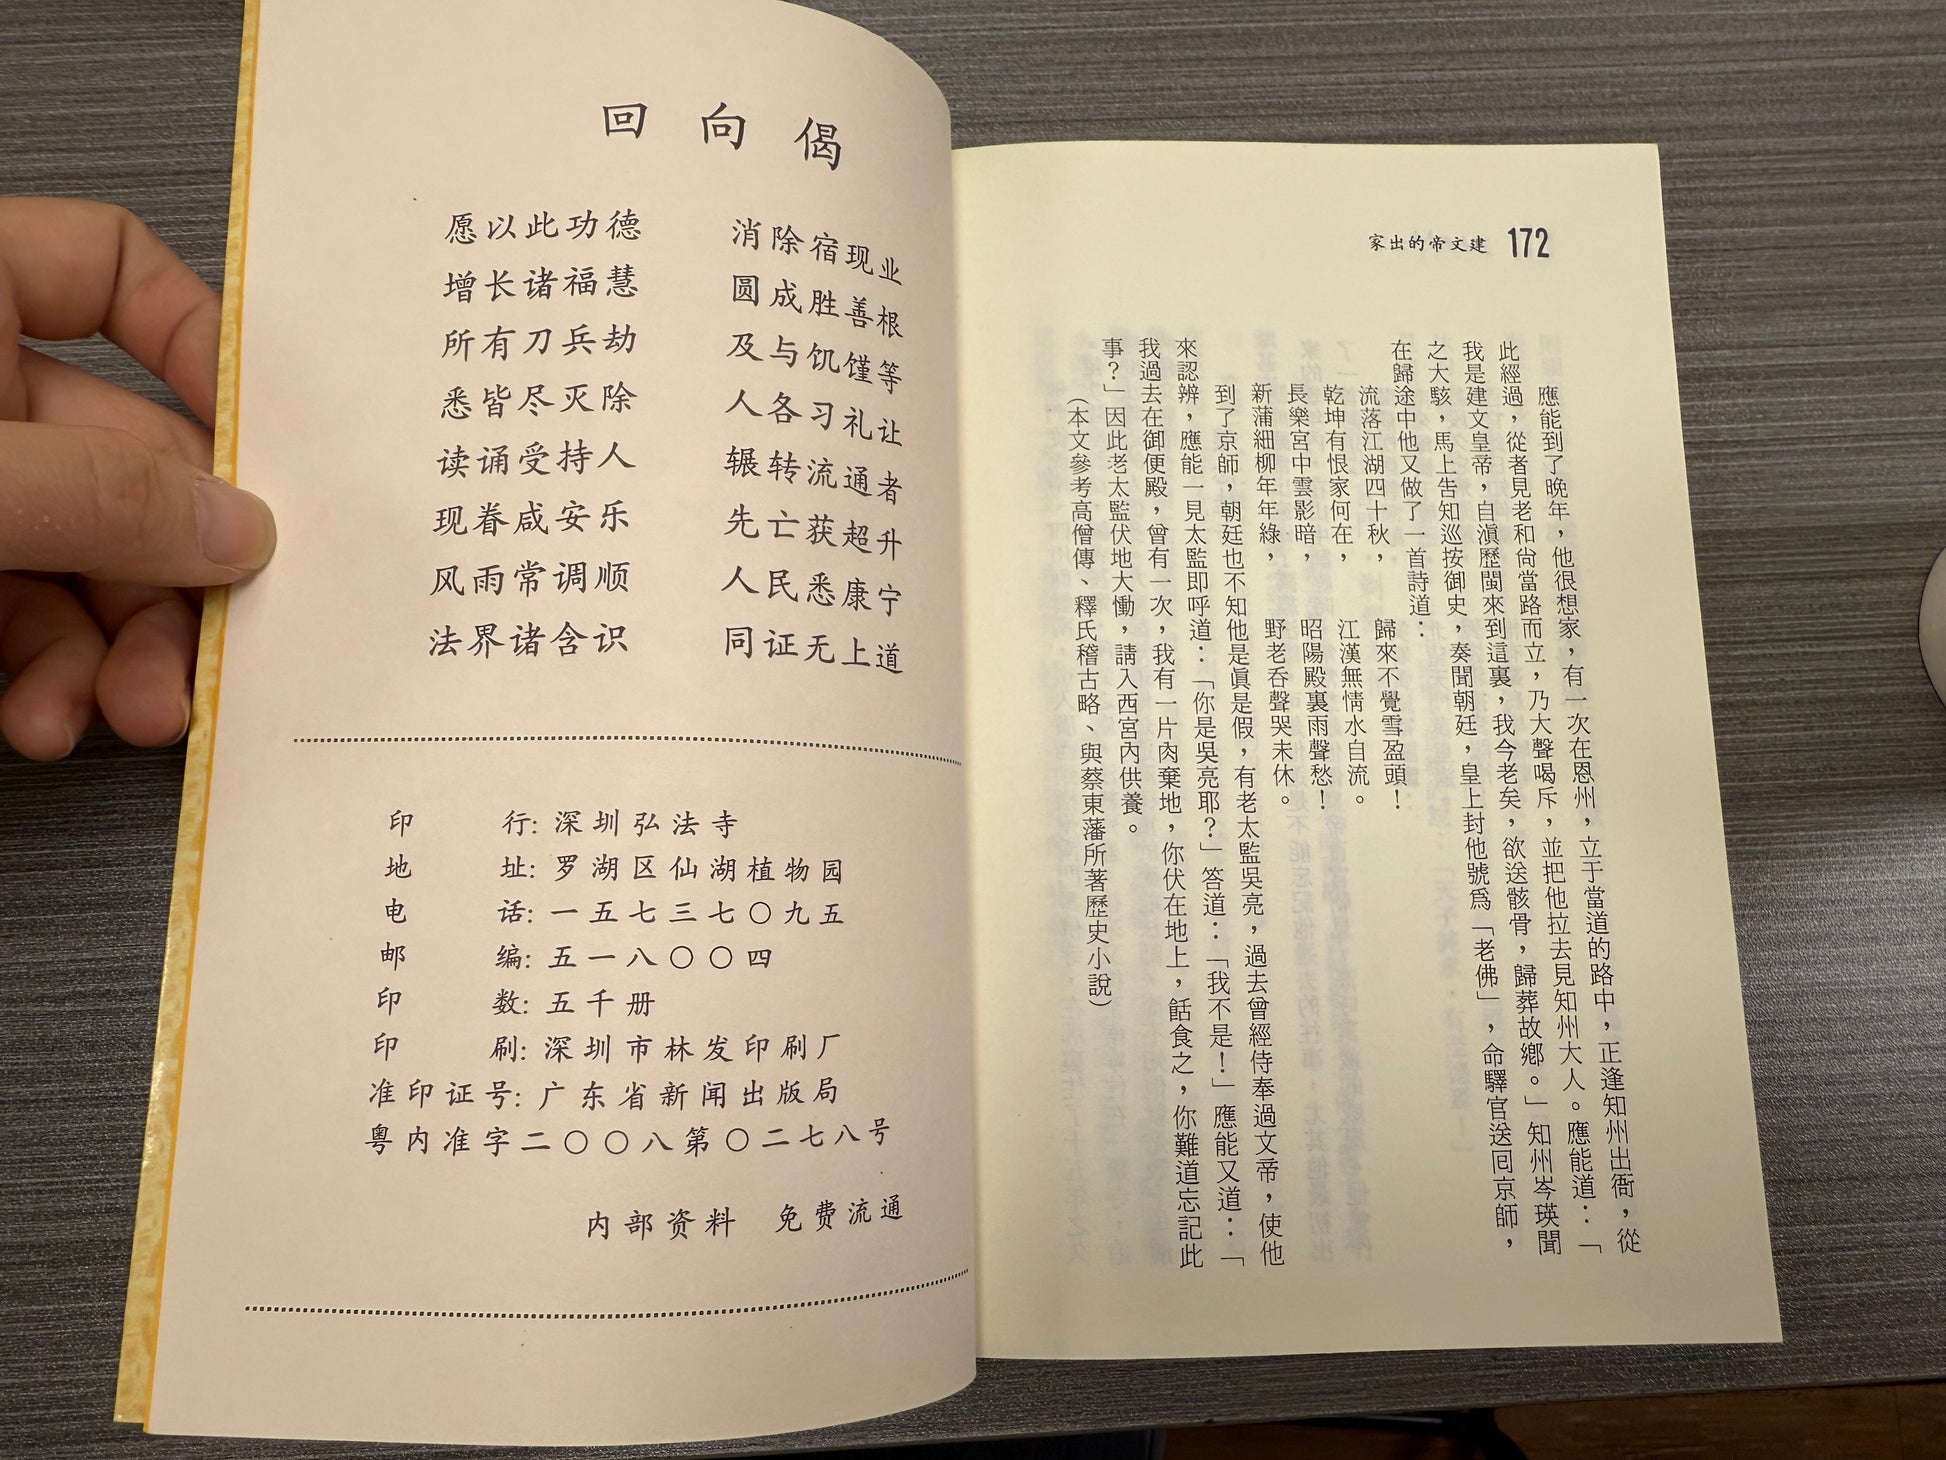 回向偈
愿以此功德 消除宿现业
增长诸福慧 圆成胜善根
所有刀兵劫 及与饥馑等
悉皆尽灭除 人各习礼让
读诵受持人 辗转流通者
现眷咸安乐 先亡获超升
风雨常调顺 人民悉康宁
法界诸含识 同证无上道
印行:深圳弘法寺
地址:罗湖区仙湖植物园
电话:一五七三七〇九五
邮编:五一八〇〇四
印数:五千册
印刷:深圳市林发印刷厂
准印证号:广东省新闻出版局
粤内准字二〇〇八第〇二七八号
内部资料 免费流通
家出的帝文建 172
應能到了晚年，他很想家，有一次在恩州，立于當道的路中，正逢知州出衙，從
此經過，從者見老和尙當路而立，乃大聲喝斥，並把他拉去見知州大人。應能道：「
我是建文皇帝，自滇歷閩來到這裏，我今老矣，欲送骸骨，歸葬故鄉。」知州岑瑛聞
之大駭，馬上吿知巡按御史，奏聞朝廷，皇上封他號爲「老佛」，命驛官送囘京師，
在歸途中他又做了一首詩道：
流落江湖四十秋， 歸來不覺雪盈頭！
乾坤有恨家何在， 江漢無情水自流。
長樂宮中雲影暗， 昭陽殿裏雨聲愁！
新蒲細柳年年綠， 野老吞聲哭未休。
到了京師，朝廷也不知他是眞是假，有老太監吳亮，過去曾經侍奉過文帝，使他
來認辨，應能一見太監即呼道：「你是吳亮耶？」答道：「我不是！」應能又道：「
我過去在御便殿，曾有一次，我有一片肉棄地，你伏在地上，餂食之，你難道忘記此
事？」因此老太監伏地大慟，請入西宮內供養。
（本文參考高僧傳、釋氏稽古略、與蔡東藩所著歷史小說）